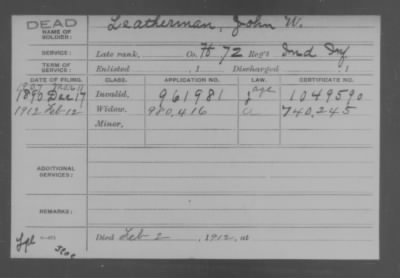 DEAD
NAME OF SOLDIER: Leatherman, John W.
SERVICE: Late rank, Co. H 72 Reg't Ind Inf
TERM OF SERVICE: Enlisted , 1 Discharged , 1
DATE OF FILING. CLASS. APPLICATION NO. LAW. CERTIFICATE NO.
1907
1890 Dec 17 Invalid, 961981 J age 1049590
1912 Feb 12 Widow, 980,416 a 740,245
Minor,
ADDITIONAL SERVICES:
REMARKS:
Died Feb 2, 1912, at